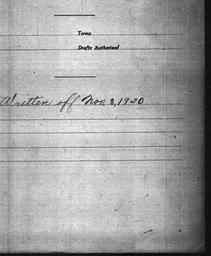 Terms
Drafts Authorized
Written off Nov. 3, 1920